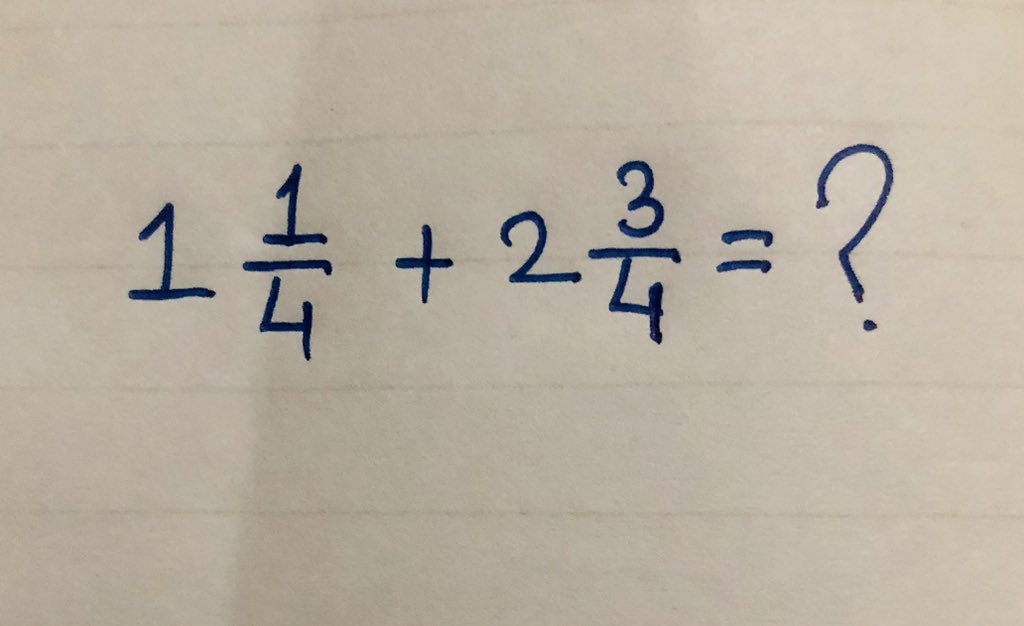 1 1/4 + 2 3/4 = ?